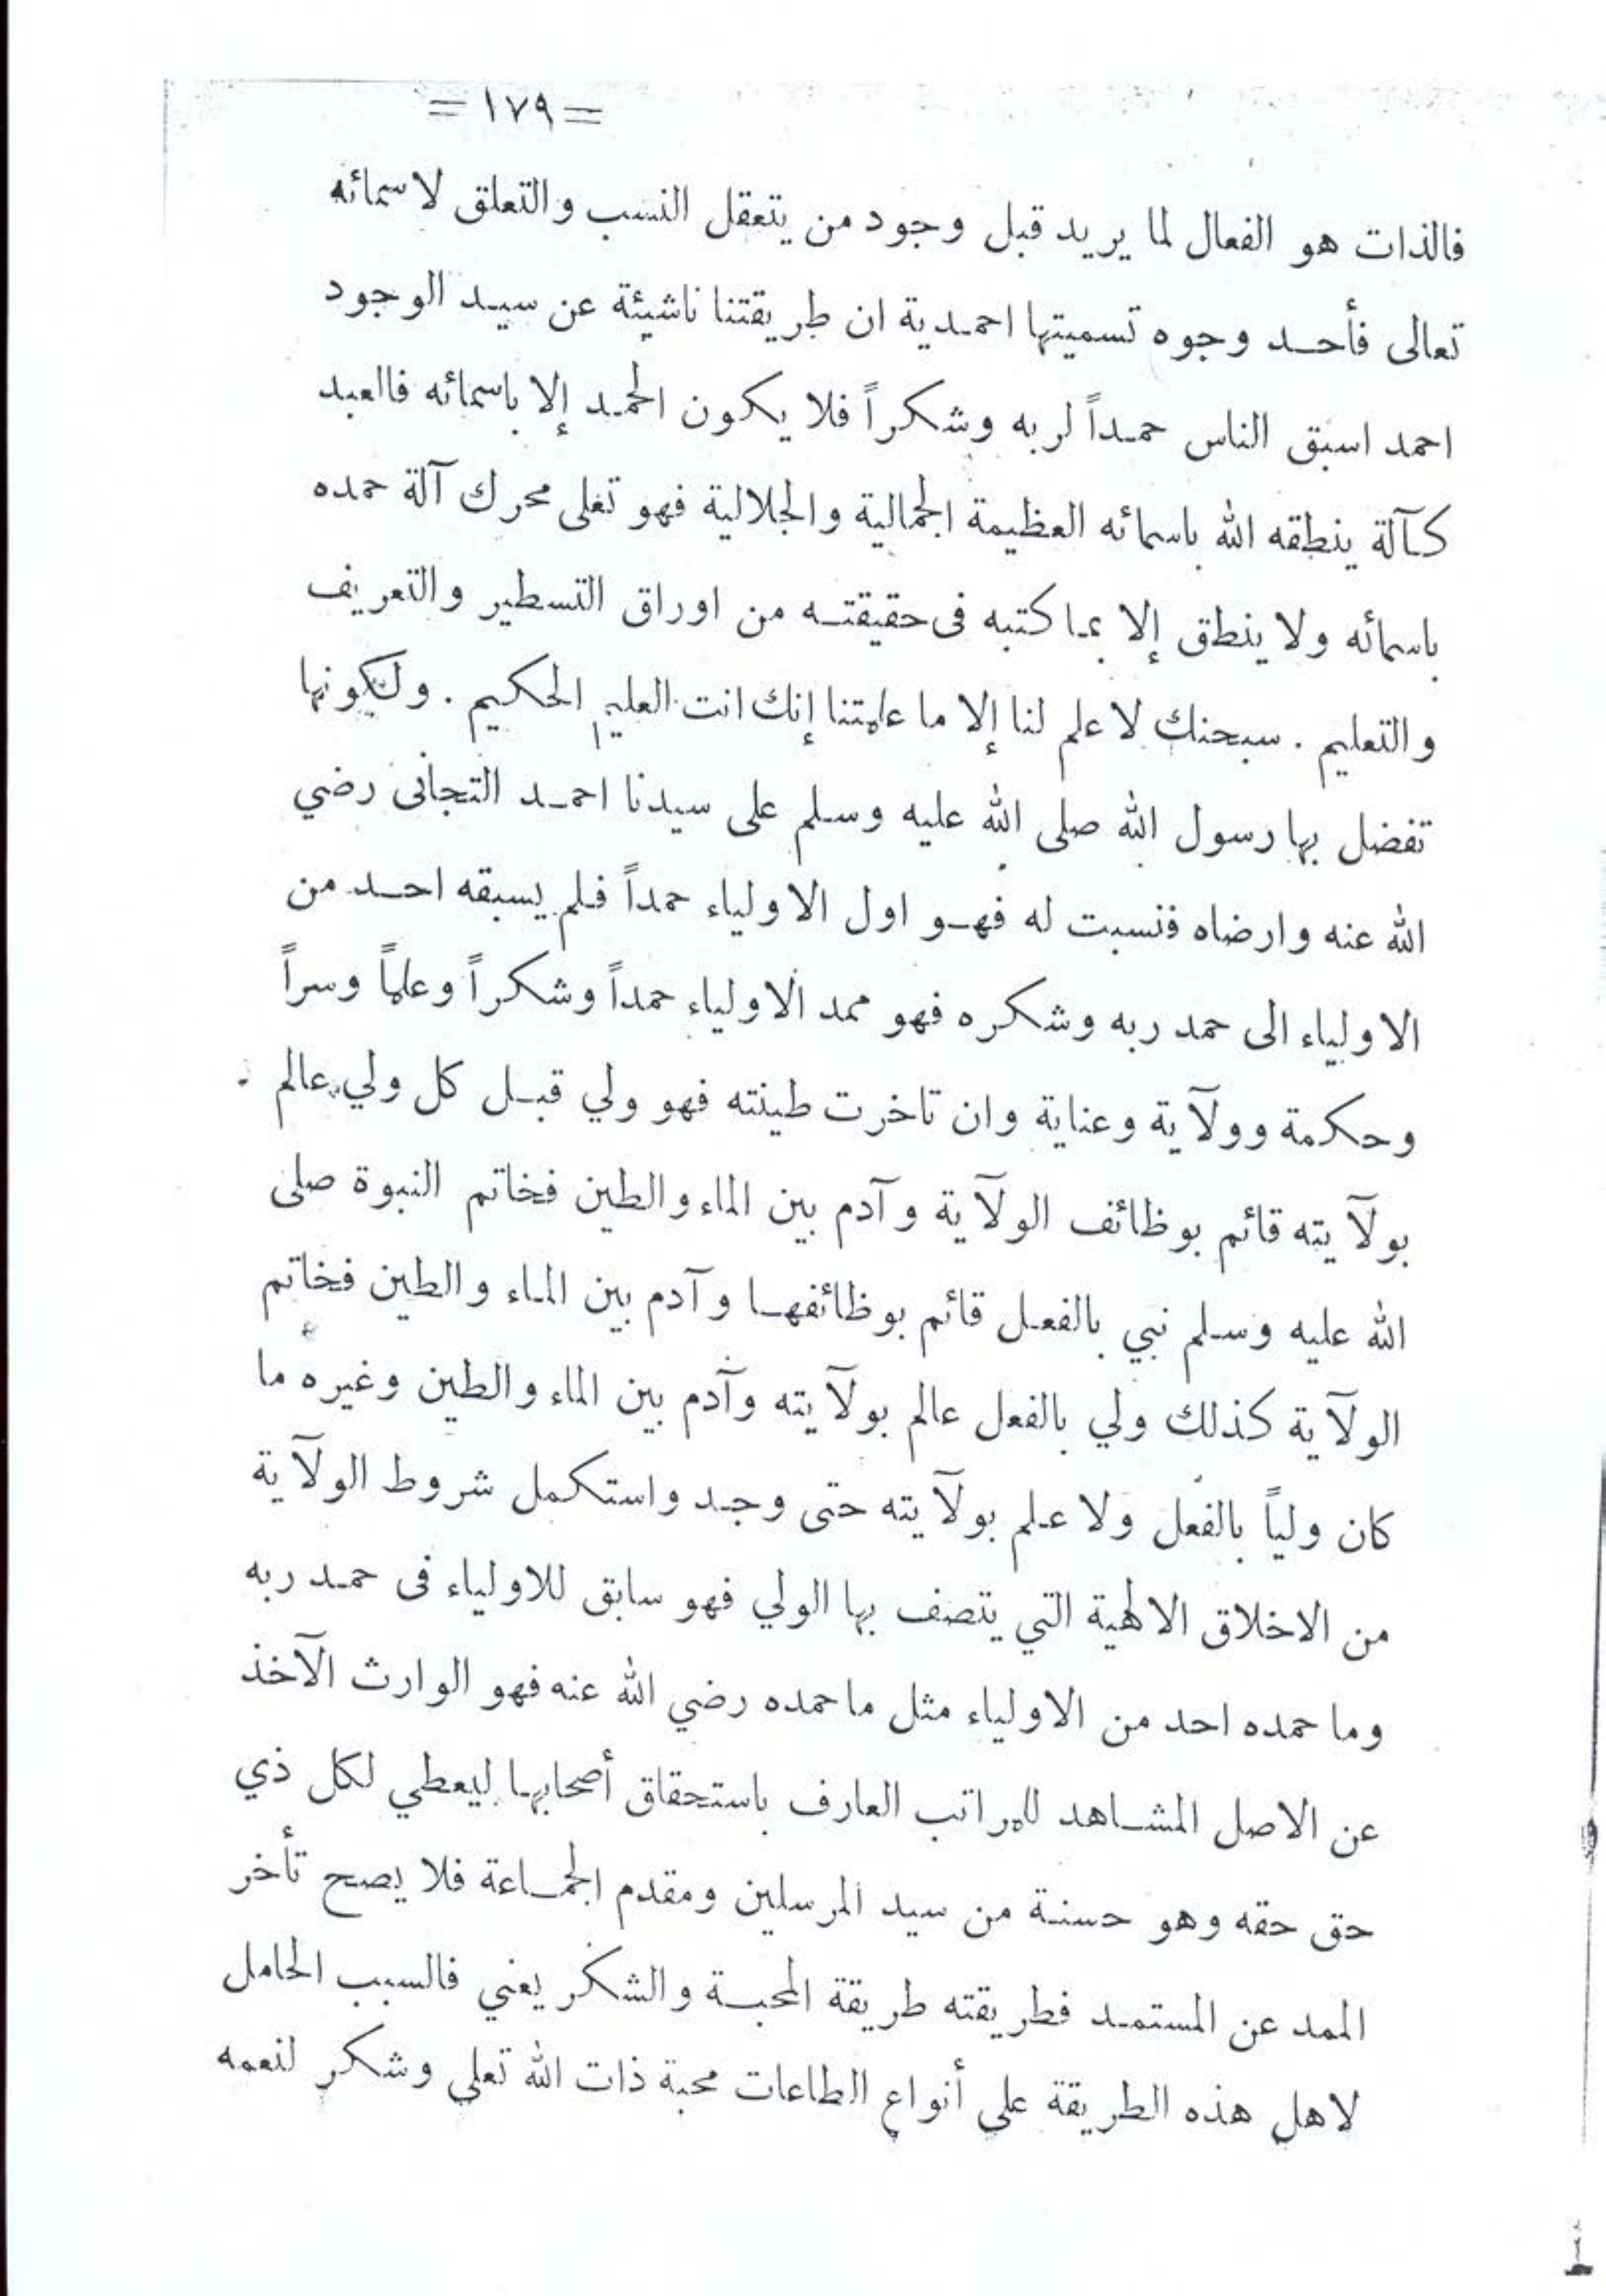 = ١٧٩ =
فالذات هو الفعال لما يريد قبل وجود من يتعقل النسب والتعلق لاسمائه
تعالى فأحد وجوه تسميتها احمدية ان طريقتنا ناشيئة عن سيد الوجود
احمد اسبق الناس حمداً لربه وشكراً فلا يكون الحمد إلا باسمائه فالعبد
كآلة ينطقه الله باسمائه العظيمة الجمالية والجلالية فهو تعلى محرك آلة حمده
باسمائه ولا ينطق إلا بما كتبه فى حقيقته من اوراق التسطير والتعريف
والتعليم . سبحنك لا علم لنا إلا ما علمتنا إنك انت العليم الحكيم . ولكونها
تفضل بها رسول الله صلى الله عليه وسلم على سيدنا احمد التجانى رضي
الله عنه وارضاه فنسبت له فهو اول الاولياء حمداً فلم يسبقه احد من
الاولياء الى حمد ربه وشكره فهو ممد الاولياء حمداً وشكراً وعلماً وسراً
وحكمة وولآية وعناية وان تاخرت طينته فهو ولي قبل كل ولي عالم .
بولآيته قائم بوظائف الولآية وآدم بين الماء والطين فخاتم النبوة صلى
الله عليه وسلم نبي بالفعل قائم بوظائفها وآدم بين الماء والطين فخاتم
الولآية كذلك ولي بالفعل عالم بولآيته وآدم بين الماء والطين وغيره ما
كان ولياً بالفعل ولا علم بولآيته حتى وجد واستكمل شروط الولآية
من الاخلاق الالهية التي يتصف بها الولي فهو سابق للاولياء فى حمد ربه
وما حمده احد من الاولياء مثل ما حمده رضي الله عنه فهو الوارث الآخذ
عن الاصل المشاهد للمراتب العارف باستحقاق أصحابها ليعطي لكل ذي
حق حقه وهو حسنة من سيد المرسلين ومقدم الجماعة فلا يصح تأخر
الممد عن المستمد فطريقته طريقة المحبة والشكر يعني فالسبب الحامل
لاهل هذه الطريقة على أنواع الطاعات محبة ذات الله تعلى وشكر لنعمه